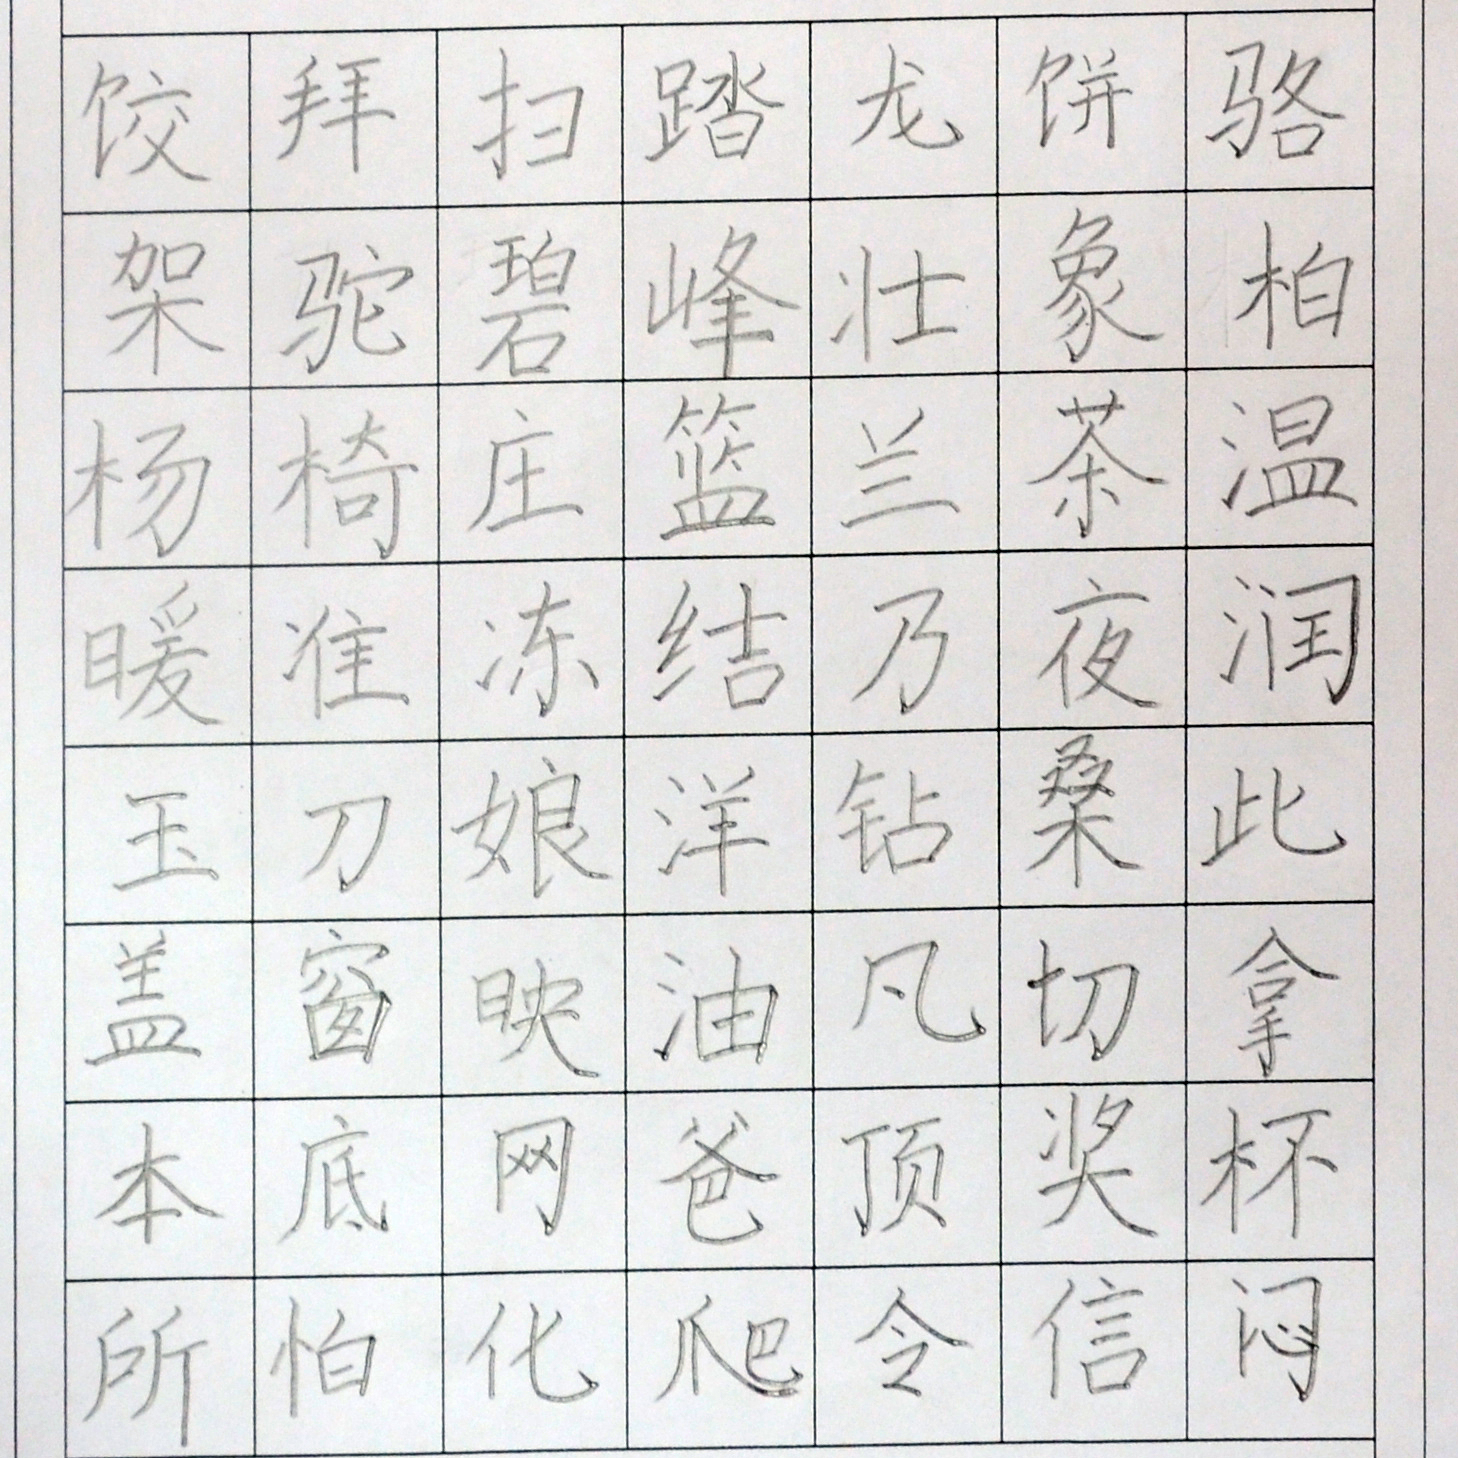 饺拜扫踏龙饼骆
架驼碧峰壮象柏
杨椅庄篮兰茶温
暖准冻结乃夜润
玉刀娘洋钻桑此
盖窗映油凡切拿
本底网爸顶奖杯
所怕化爬令信闷